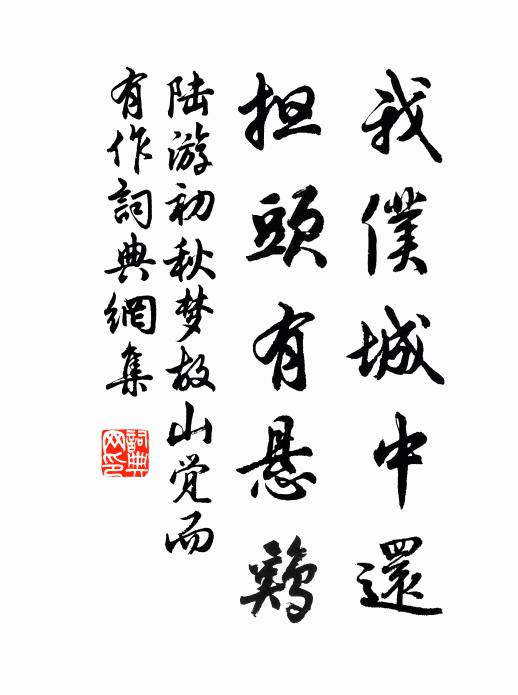 我僕城中還
担頭有悬鷄
陆游初秋梦故山觉而
有作詞典網集
詞典
网印